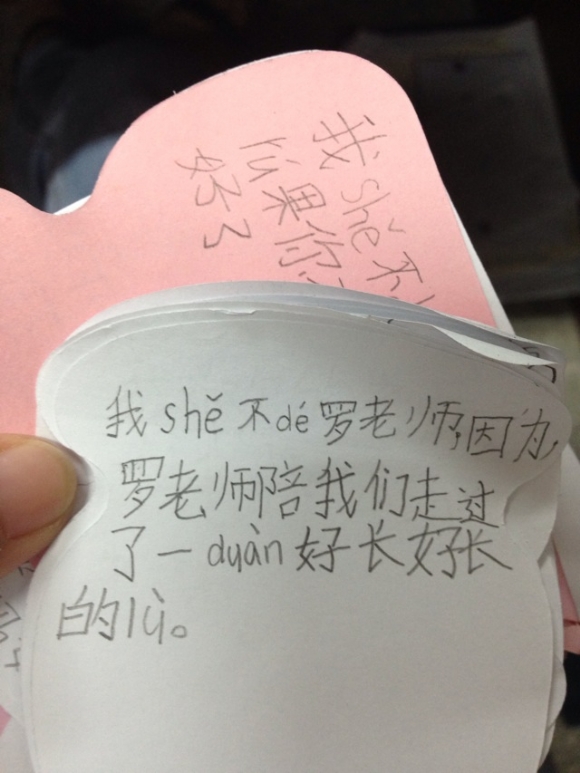 我shě不
果你
好了
我shě不dé罗老师,因为,
罗老师陪我们走过
了一duàn好长好长
的lù。